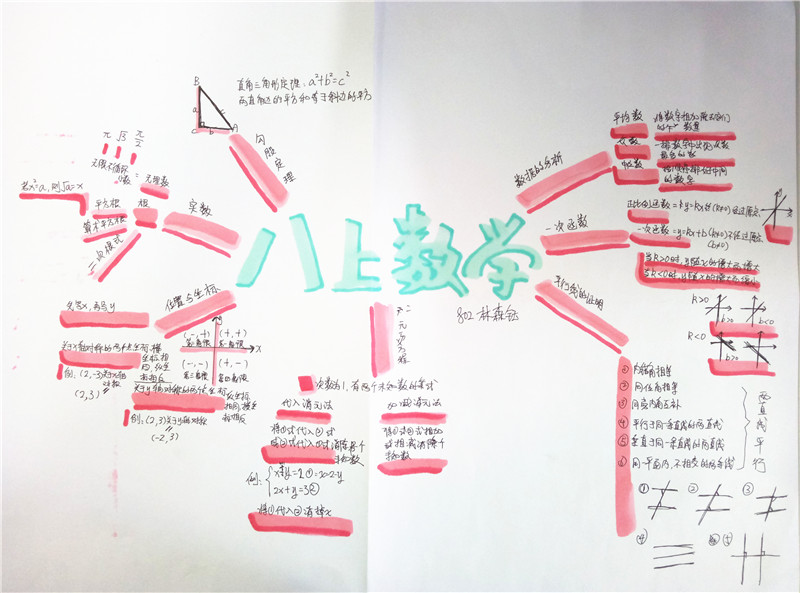 八上数学
802 林森
勾股定理
B
a
c
C
b
A
直角三角形定理：a²+b²=c²
两直角边的平方和等于斜边的平方
实数
π √3 π/2
无限不循环
小数 = 无理数
若x²=a，则√a=x
平方根
根
算术平方根
二次根式
位置与坐标
先写x，再写y
(-,+)
(+,+)
第二象限
第一象限
(-,-)
(+,-)
第三象限
第四象限
y
x
关于x轴对称的两个点坐标，横
坐标相
同，纵坐
标相反
例：(2,-3)关于x轴
对称
(2,3)
关于y轴对称的两个点坐标
纵坐标
相同，横坐
标相反
例：(2,3)关于y轴对称
(-2,3)
二元一次方程
次数为1，有两个未知数的等式
代入消元法
将①式代入②式
例：
x+y=2①=x=2-y
2x+y=3②
将①代入②消掉x
加减消元法
将①式②式相加
或相减消掉个
未知数
数据的分析
平均数
将数字相加除以它们
的个数
众数
一排数字中出现次数
最多的数
中位数
的数字
一次函数
正比例函数=y=kx(k≠0)经过原点
一次函数=y=kx+b(k≠0)不经过原点
(b≠0)
当k>0时，y随x的增大而增大
当k<0时，y随x的增大而减小
k>0
b>0
b<0
k<0
b>0
b<0
平行线的证明
①内错角相等
②同位角相等
③同旁内角互补
④平行于同一条直线的两直线
⑤垂直于同一条直线的两直线
⑥同一平面内，不相交的两条线
两直线平行
① ② ③
④ ⑤